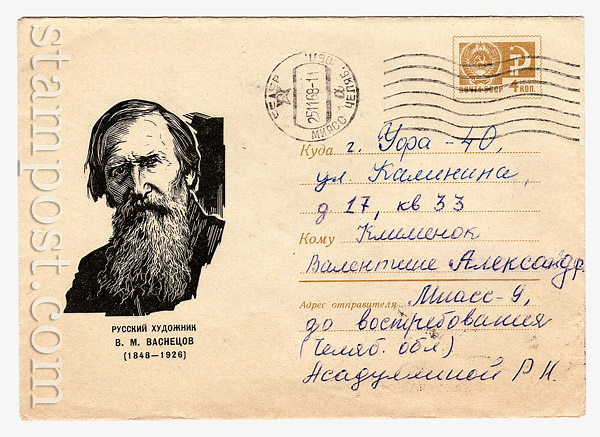 stamp-post.com
СССР ЧЕЛЯБ. ОБЛ.
25 11 68 - 11
МИАСС
ПОЧТА СССР 4 КОП.
Куда г. Уфа - 40,
ул. Калинина
д 17, кв 33
Кому Клименок
Валентине Александр.
Адрес отправителя Миасс-9,
до востребования
(Челяб. обл)
Асадуллиной Р Н.
РУССКИЙ ХУДОЖНИК
В. М. ВАСНЕЦОВ
(1848—1926)